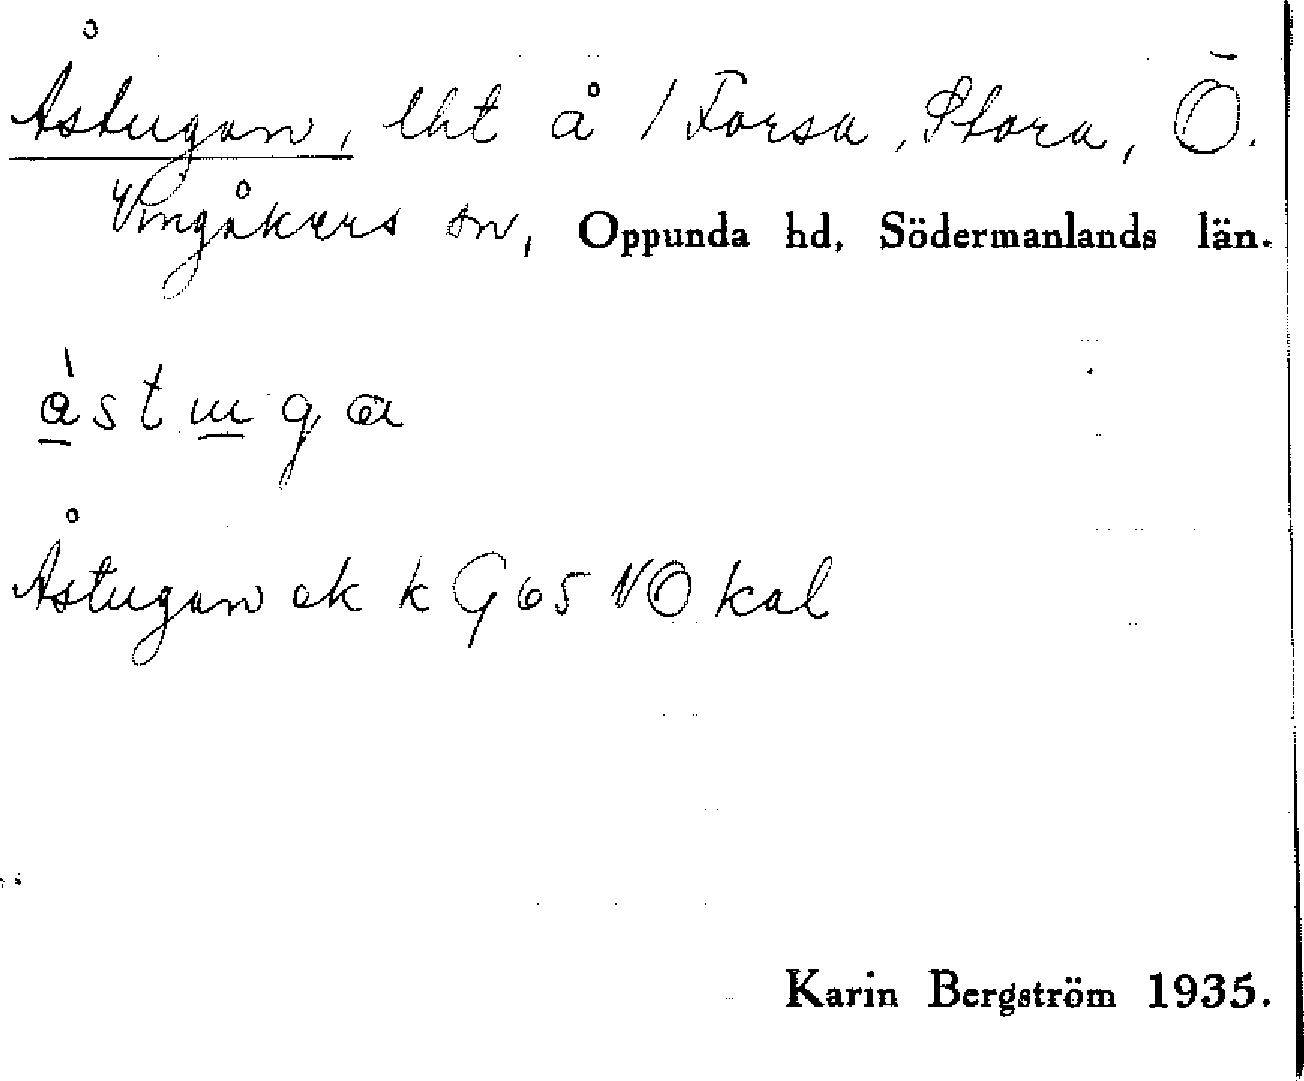 Åstugan, lht å / Forsa, Stora, Ö.
Vingåkers sn, Oppunda hd, Södermanlands län.
åstuga
Åstugan ek k G 65 NO kal
Karin Bergström 1935.